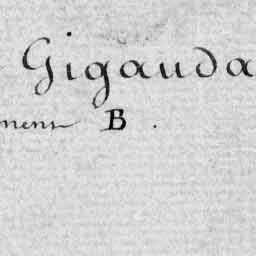 Gigauda
mens B.